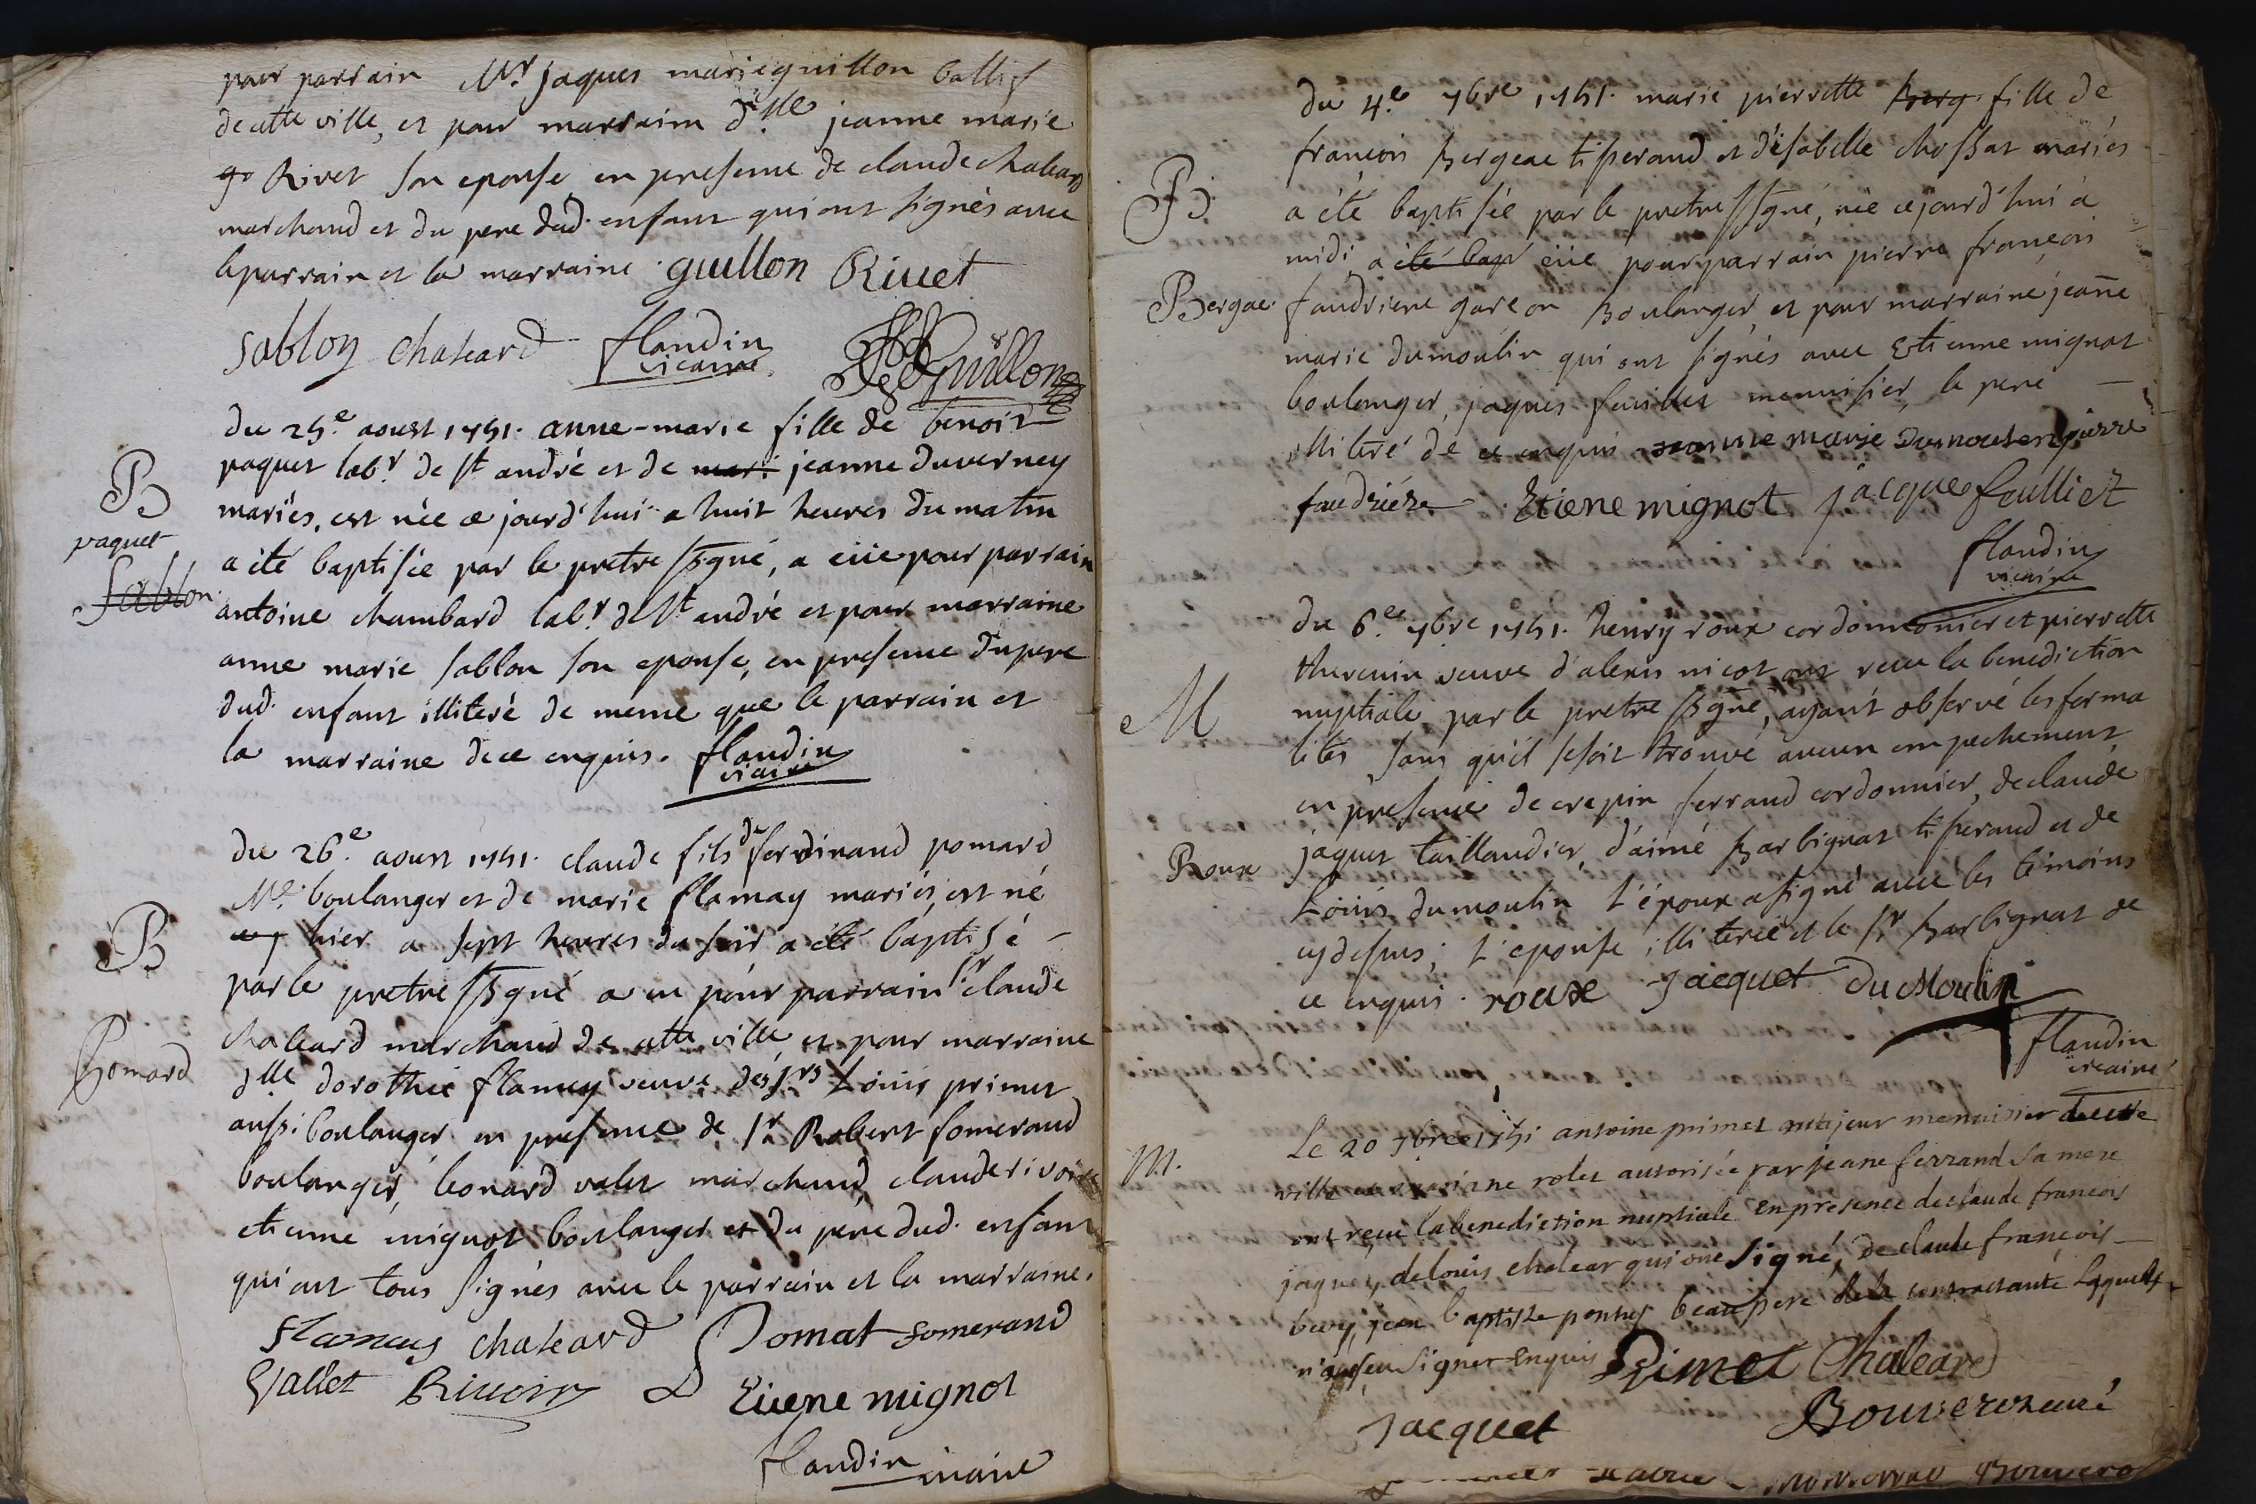 pour parrain Mr. jaques marie guillon ballif
de cette ville, et pour marraine dlle jeanne marie
go Rivet son epouse, en presence de claude chaleard
marchand et du pere dud. enfant qui ont signés avec
le parrain et la marraine. guillon Rivet
Sablon chaleard flandin vicaire Guillon
B
paquet
Sablon
du 25e. aoust 1751. anne-marie fille de benoit
paquet labr. de st andré et de mari jeanne duverney
mariés, est née ce jourd'hui a huit heures du matin
a été baptisée par le pretre ssigné, a eüe pour parrain
antoine chambard labr. de st andré et pour marraine
anne marie sablon son epouse, en presence du pere
dud. enfant illiteré de meme que le parrain et
la marraine de ce enquis. flandin vicaire
B
Pomard
du 26e. aoust 1751. claude fils de ferdinand pomard
Me. boulanger et de marie flamay mariés, est né
hier a sept heures du soir a été baptisé
par le pretre ssigné a eu pour parrain sr claude
chaleard marchand de cette ville, et pour marraine
dlle dorothée flamey veuve de Louis primet
aussi boulanger en presence de sr Robert someraud
boulanger, leonard valet marchand, claude rivoire
etienne mignot boulanger et du père dud. enfant
qui ont tous signés avec le parrain et la marraine.
chaleard Pomat Somerand
Vallet Rivoire Etiene mignot
flandin vicaire
B
Bergae
du 4e. 7bre 1751. marie pierrette Berg fille de
françois Bergeae tisserand et d'isabelle chossat mariés
a été baptisée par le pretre ssigné, née ce jourd'hui à
midi a été bap eüe pour parrain pierre françois
faudriere garcon Boulanger, et pour marraine jeane
marie dumoulin qui ont signés avec Etienne mignot
boulanger, jaques fuillet menuisier, le pere
illiteré de ce enquis jeanne marie dumoulen pierre
faudriére Etiene mignot jacque foulliet
flandin
vicaire
M
Roux
du 6e. 7bre 1751. henry roux cordonnier et pierrette
thevenin veuve d'alexis nicot ont recu la benediction
nuptiale par le pretre ssigné, ayant observé les forma
lités sans qu'il se soit trouvé aucun empechement
en presence de crepin ferrand cordonnier, de claude
jaquet taillandier, d'aimé Barbignat tisserand et de
Louis dumoulin l'époux a signé avec les témoins
cy dessus; l'epouse illiterée et le sr Barbignat de
ce enquis. roux Jacquet Du Moulin
flandin
vicaire
M.
Le 20 7bre 1751 antoine primet majeur menuisier de cette
ville et mariane rolet autorisée par jeane ferrand sa mere
ont recu la benediction nuptiale en presence de claude francois
jaquet, de louis chalear qui ont signé, de claude françois
bery, jean baptiste ponthus beau pere de la contractante laquelle
n'a sceu signer enquis Primet Chaleard
Jacquet Bouverot curé